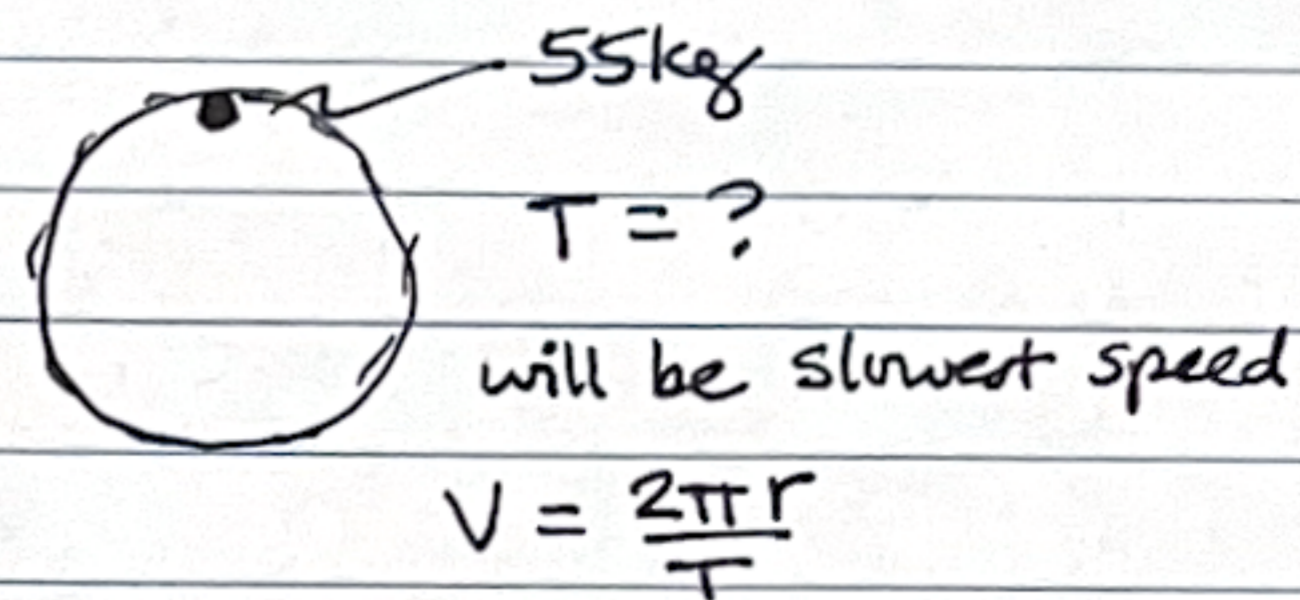 55kg
T = ?
will be slowest speed
V = 2πr / T